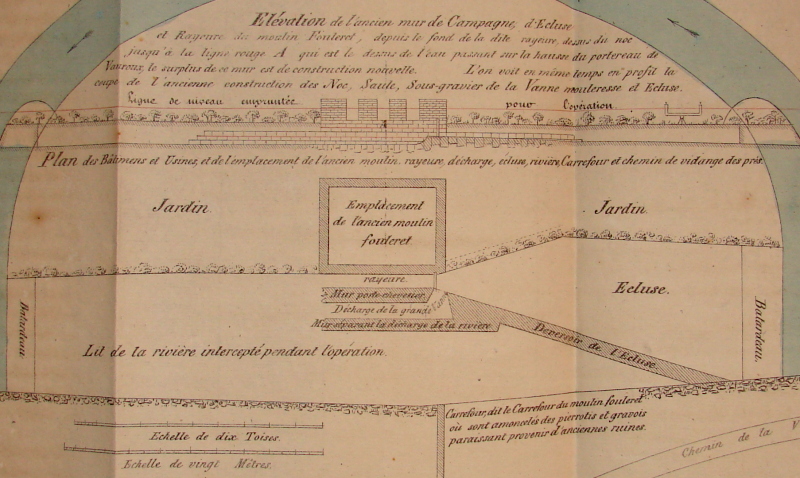 Elévation de l'ancien mur de Campagne, d'Ecluse
et Rayeure du moulin Fouleret, depuis le fond de la dite rayeure, dessus du noc
jusqu'à la ligne rouge A qui est le dessus de l'eau passant sur la hausse du portereau de
Vauroux, le surplus de ce mur est de construction nouvelle. L'on voit en même temps en profil la
coupe de l'ancienne construction des Noc, Saule, Sous-gravier de la Vanne mouleresse et Ecluse.
Ligne de niveau empruntée pour l'opération
A
Plan des Bâtimens et Usines, et de l'emplacement de l'ancien moulin, rayeure, décharge, écluse, rivière, Carrefour et chemin de vidange des prés
Jardin
Emplacement
de l'ancien moulin
fouleret
Jardin
rayeure.
Mur porte-chevessier
Décharge de la grande
Mur séparant la décharge de la rivière
Ecluse.
Batardeau.
Deversoir de l'Ecluse.
Batardeau.
Lit de la rivière intercepté pendant l'opération.
Carrefour, dit le Carrefour du moulin fouleret
où sont amoncelés des pierrotis et gravois
paraissant provenir d'anciennes ruines.
Echelle de dix Toises.
Echelle de vingt Mètres.
Chemin de la V